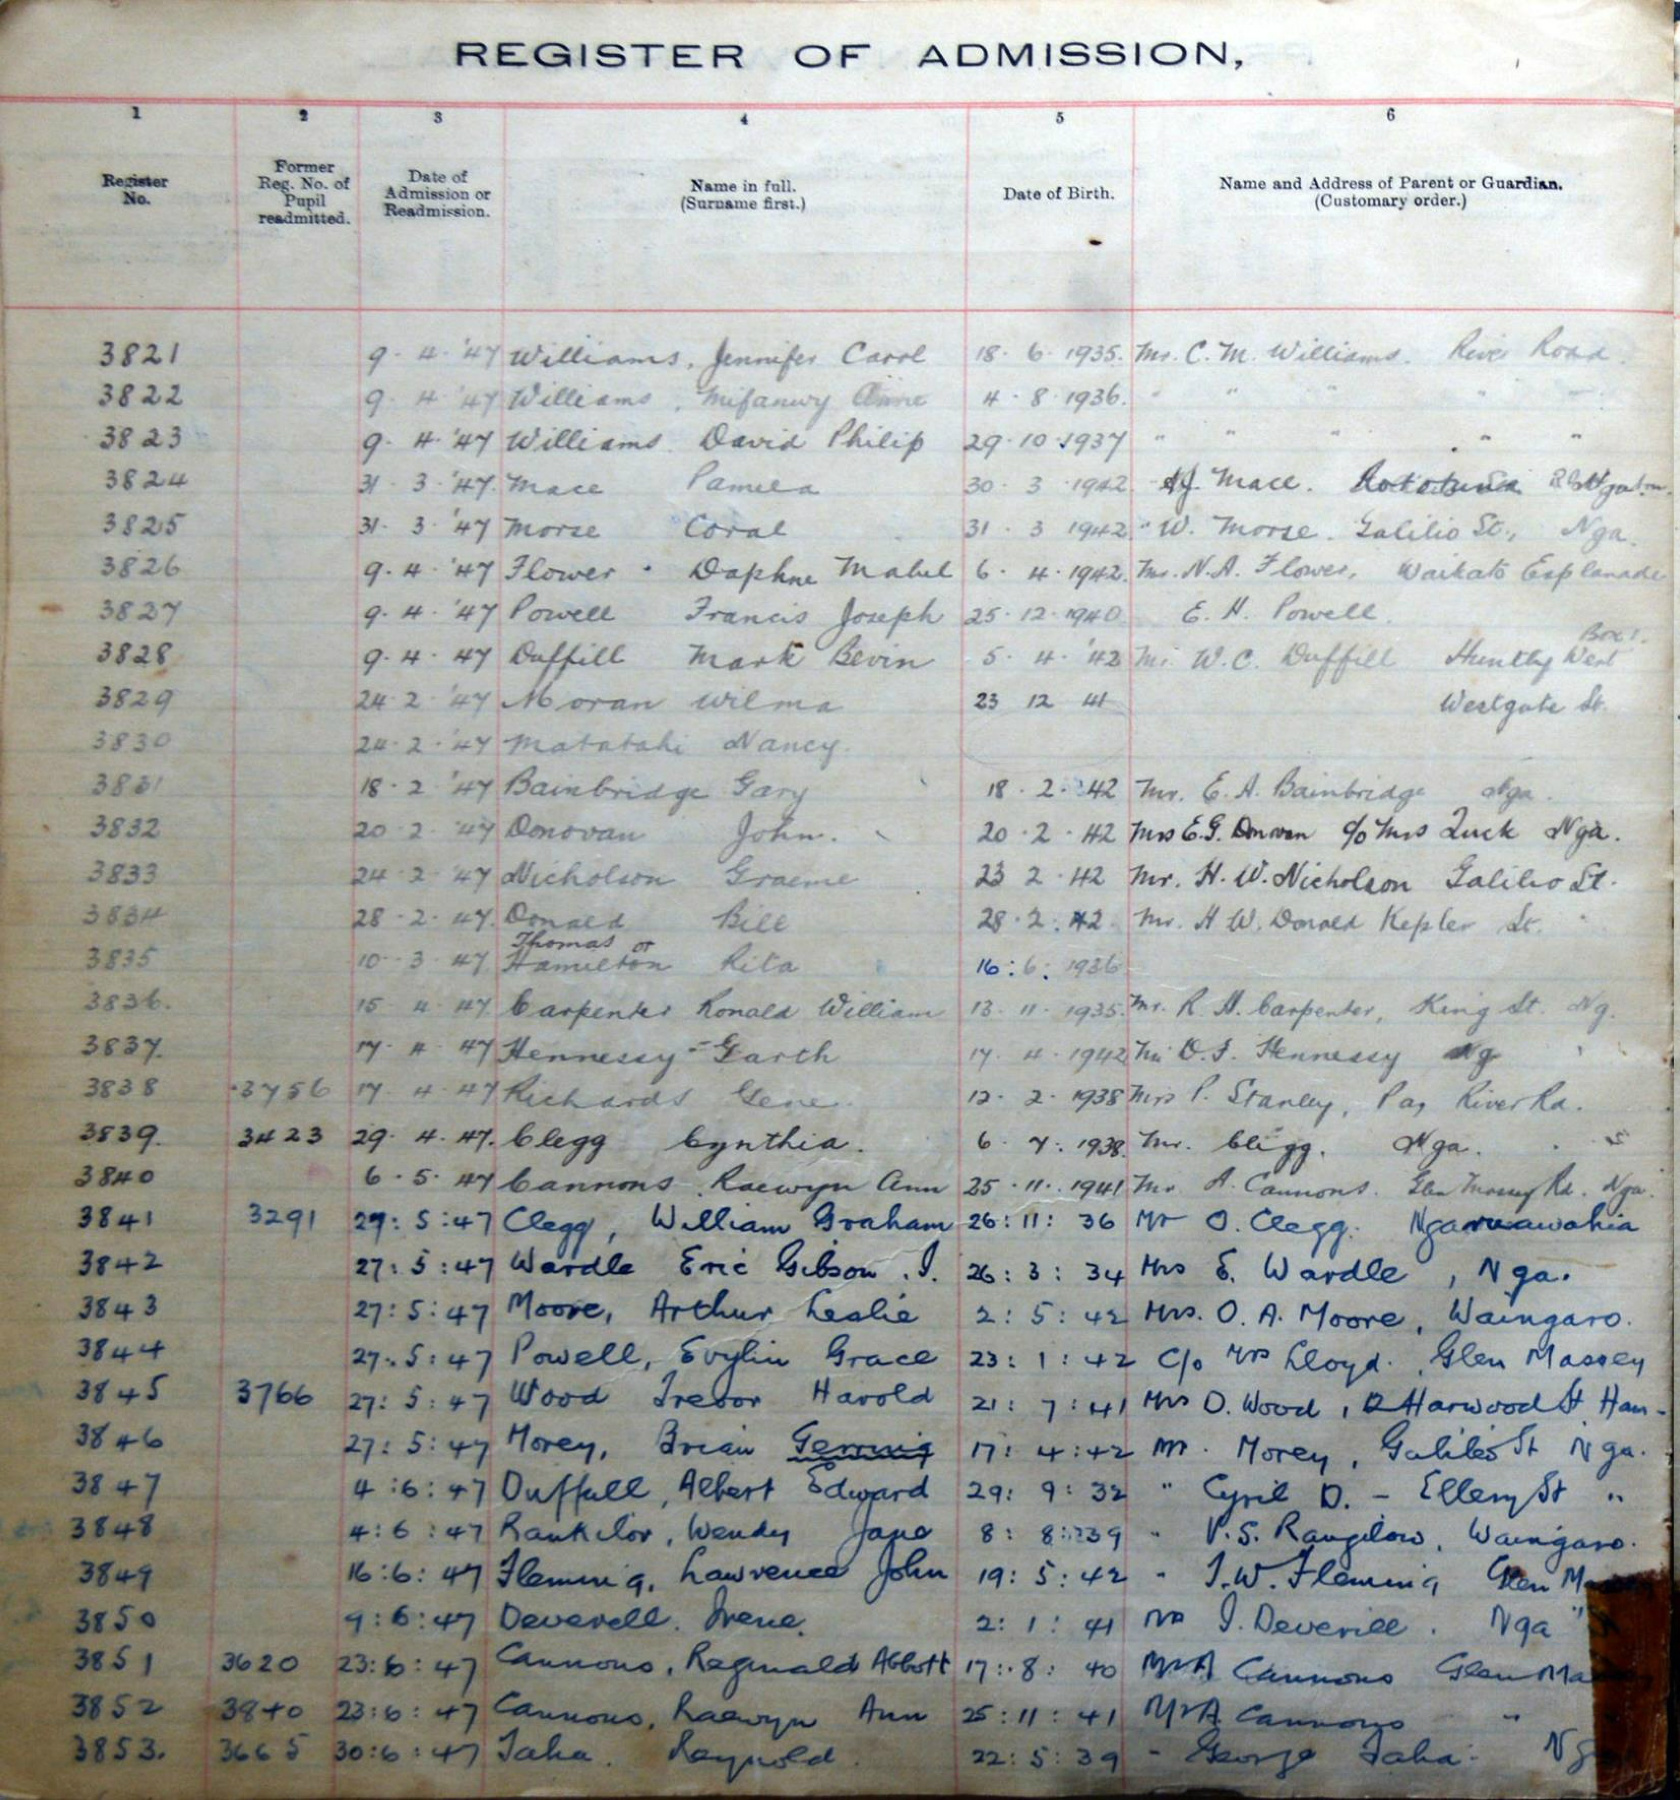 REGISTER OF ADMISSION,
1 2 3 4 5 6
Register No. Former Reg. No. of Pupil readmitted. Date of Admission or Readmission. Name in full. (Surname first.) Date of Birth. Name and Address of Parent or Guardian. (Customary order.)
3821 9. 4. '47 Williams, Jennifer Carol 18. 6. 1935. Mr. C. M. Williams. River Road.
3822 9. 4 '47 Williams, Mifanwy Anne 4. 8. 1936. " " " " "
3823 9. 4. '47 Williams David Philip 29.10.1937 " " " " "
3824 31. 3. '47. Mace Pamela 30. 3. 1942 Mace.
3825 31. 3. '47 Morse Coral 31. 3 1942 " W. Morse. Galilio St., Nga.
3826 9. 4. '47 Flower Daphne Mabel 6. 4. 1942. Mr. N.A. Flower, Waikato Esplanade
3827 9. 4. '47 Powell Francis Joseph 25. 12. 1940 E. H. Powell.
Box 1.
3828 9. 4. 47 Duffill Mark Bevin 5. 4. '42 Mr. W. C. Duffill Huntly West
3829 24. 2. '47 Moran Wilma 23 12 41 Westgate St.
3830 24. 2. '47 Matatahi Nancy.
3831 18. 2 '47 Bainbridge Gary 18. 2. 42 Mr. E. A. Bainbridge Nga.
3832 20. 2. '47 Donovan John. 20. 2. 42 Mrs E.G. Donovan c/o Mrs Luck Nga.
3833 24. 2. '47 Nicholson Graeme 23 2. 42 Mr. H. W. Nicholson Galilio St.
3834 28. 2. 47. Donald Bill 28. 2. 42. Mr. H W. Donald Kepler St.
Thomas or
3835 10. 3. 47 Hamilton Rita 16: 6: 1936
3836. 15 4. 47 Carpenter Ronald William 13. 11. 1935. Mr. R. H. Carpenter, King St. Ng.
3837. 17. 4. 47 Hennessy - Garth 17. 4. 1942 Mr. O. F. Hennessy Ng
3838 3756 17. 4. 47 Richards Gene. 12. 2. 1938 Mrs P. Stanley, River Rd.
3839. 3423 29. 4. 47. Clegg Cynthia. 6. 7. 1938. Mr. Clegg. Nga.
3840 6. 5. 47 Cannons. Raewyn Ann 25. 11. 1941 Mr. A. Cannons. Glen Massey Rd. Nga.
3841 3291 27: 5: 47 Clegg, William Graham 26: 11: 36 Mr O. Clegg. Ngaruawahia
3842 27: 5: 47 Wardle Eric Gibson . I. 26: 3: 34 Mrs E. Wardle, Nga.
3843 27: 5: 47 Moore, Arthur Leslie 2: 5: 42 Mrs. O. A. Moore, Waingaro.
3844 27. 5: 47 Powell, Evylin Grace 23: 1: 42 C/o Mrs Lloyd. Glen Massey
3845 3766 27: 5: 47 Wood Trevor Harold 21: 7: 41 Mrs D. Wood, Harwood St Ham-
3846 27: 5: 47 Morey, Brian 17: 4: 42 Mr. Morey, Galileo St Nga.
3847 4: 6: 47 Duffull, Albert Edward 29: 9: 32 " Cyril D. - Ellery St "
3848 4: 6: 47 Rankilor, Wendy Jane 8: 8: 39 " V. S. Rangilow, Waingaro.
3849 16: 6: 47 Fleming, Lawrence John 19: 5: 42 " I. W. Fleming Glen
3850 9: 6: 47 Deverell. Irene. 2: 1: 41 Mr I. Deverill. Nga "
3851 3620 23: 6: 47 Cannons, Reginald Abbott 17: 8: 40 Mr A Cannons Glen Ma
3852 3840 23: 6: 47 Cannons, Raewyn Ann 25: 11: 41 Mr A Cannons "
3853. 3665 30: 6: 47 Taha. Reynold. 22: 5: 39 " George Taha. Ng